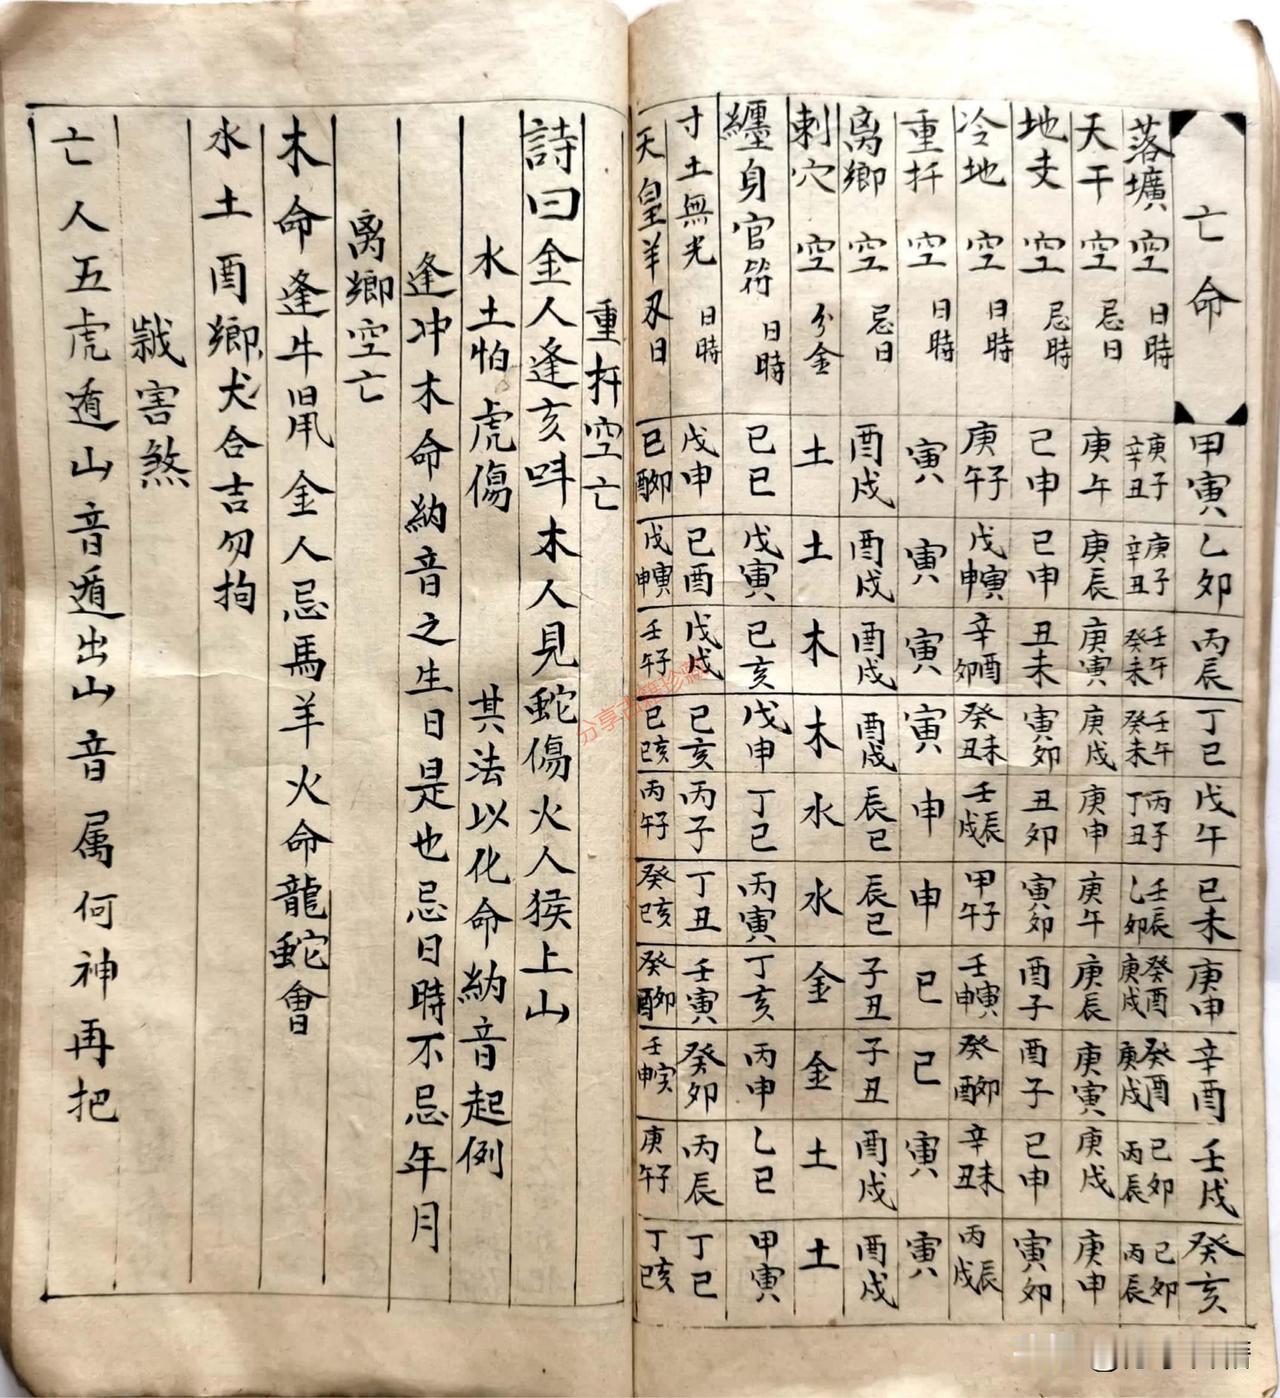 亡命 甲寅 乙卯 丙辰 丁巳 戊午 己未 庚申 辛酉 壬戌 癸亥
落壙空日時 庚子辛丑 庚子辛丑 壬午癸未 壬午癸未 丙子丁丑 壬辰乙卯 癸酉庚戌 癸酉庚戌 己卯丙辰 己卯丙辰
天干空忌日 庚午 庚辰 庚寅 庚戌 庚申 庚午 庚辰 庚寅 庚戌 庚申
地支空忌時 巳申 巳申 丑未 寅卯 丑卯 寅卯 酉子 酉子 巳申 寅卯
冷地空日時 庚子午 戊寅申 辛酉卯 癸未丑 壬辰戌 甲子午 壬寅申 癸卯酉 辛未丑 丙辰戌
重扦空日時 寅 寅 寅 寅 申 申 巳 巳 寅 寅
离鄉空忌日 酉戌 酉戌 酉戌 酉戌 辰巳 辰巳 子丑 子丑 酉戌 酉戌
刺穴空分金 土 土 木 木 水 水 金 金 土 土
纏身官符日時 己巳 戊寅 己亥 戊申 丁巳 丙寅 丁亥 丙申 乙巳 甲寅
寸土無光日時 戊申 己酉 戊戌 己亥 丙子 丁丑 壬寅 癸卯 丙辰 丁巳
天皇羊刃日 己卯酉 戊寅申 壬子午 己亥巳 丙子午 癸亥巳 癸卯酉 壬寅申 庚子午 丁亥巳
重扦空亡
詩曰金人逢亥叫木人見蛇傷火人猴上山
水土怕虎傷 其法以化命納音起例
逢冲木命納音之生日是也忌日時不忌年月
离鄉空亡
木命逢牛鼠金人忌馬羊火命龍蛇會
水土酉鄉犬合吉勿拘
戮害煞
亡人五虎遁山音遁出山音属何神再把
分享古籍珍藏